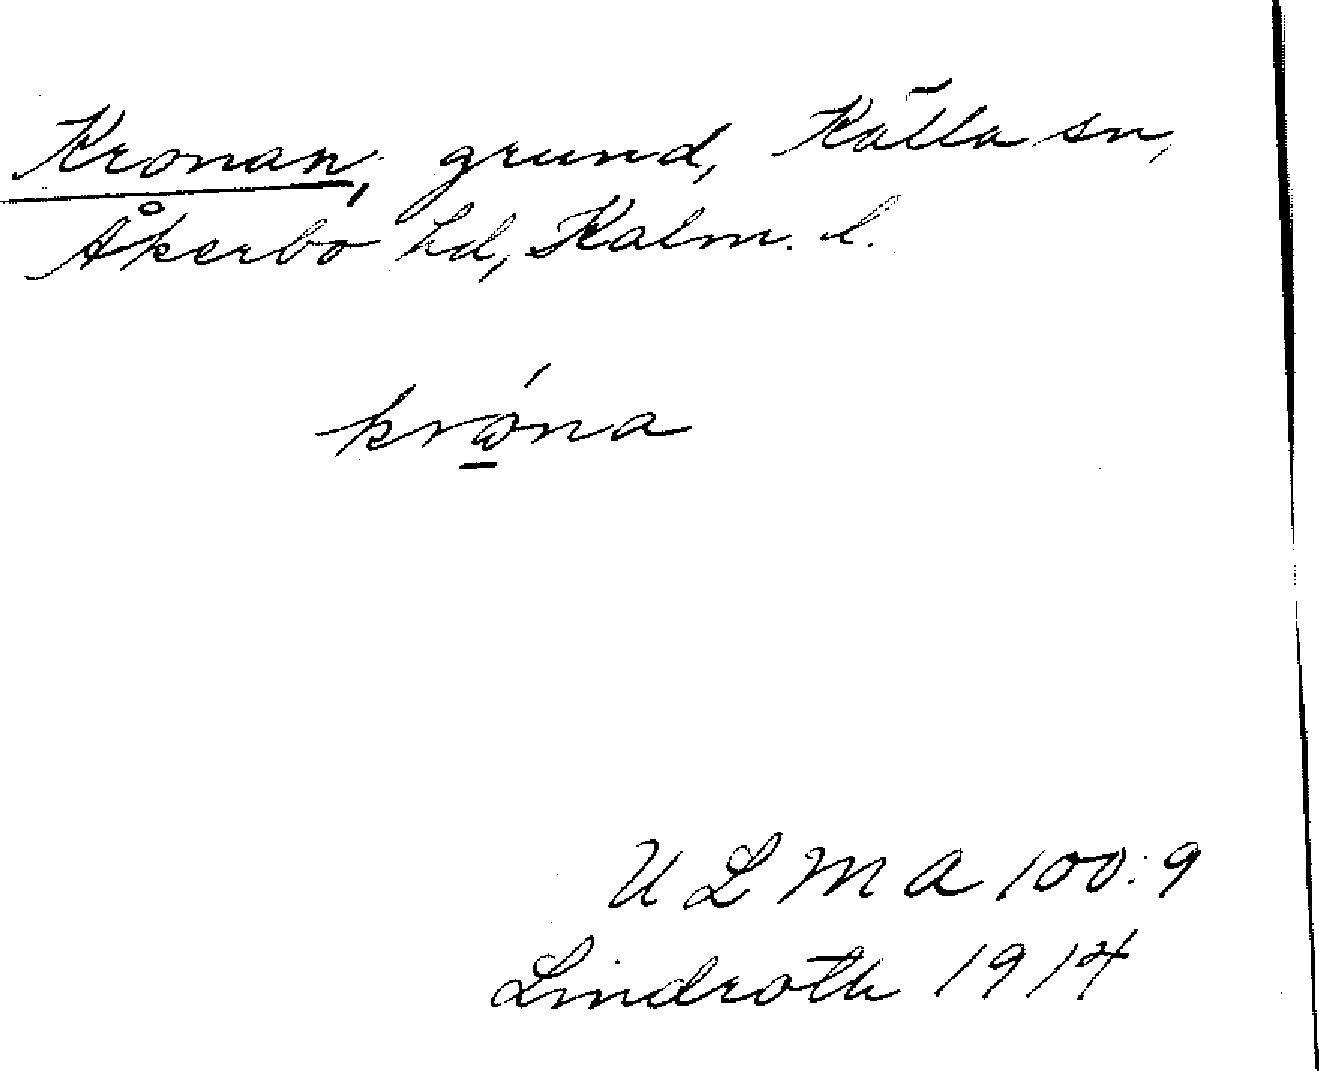 Kronan, grund, Källa sn,
Åkerbo hd, Kalm. l.
krǿ̱na
ULMA 100:9
Lindroth 1914